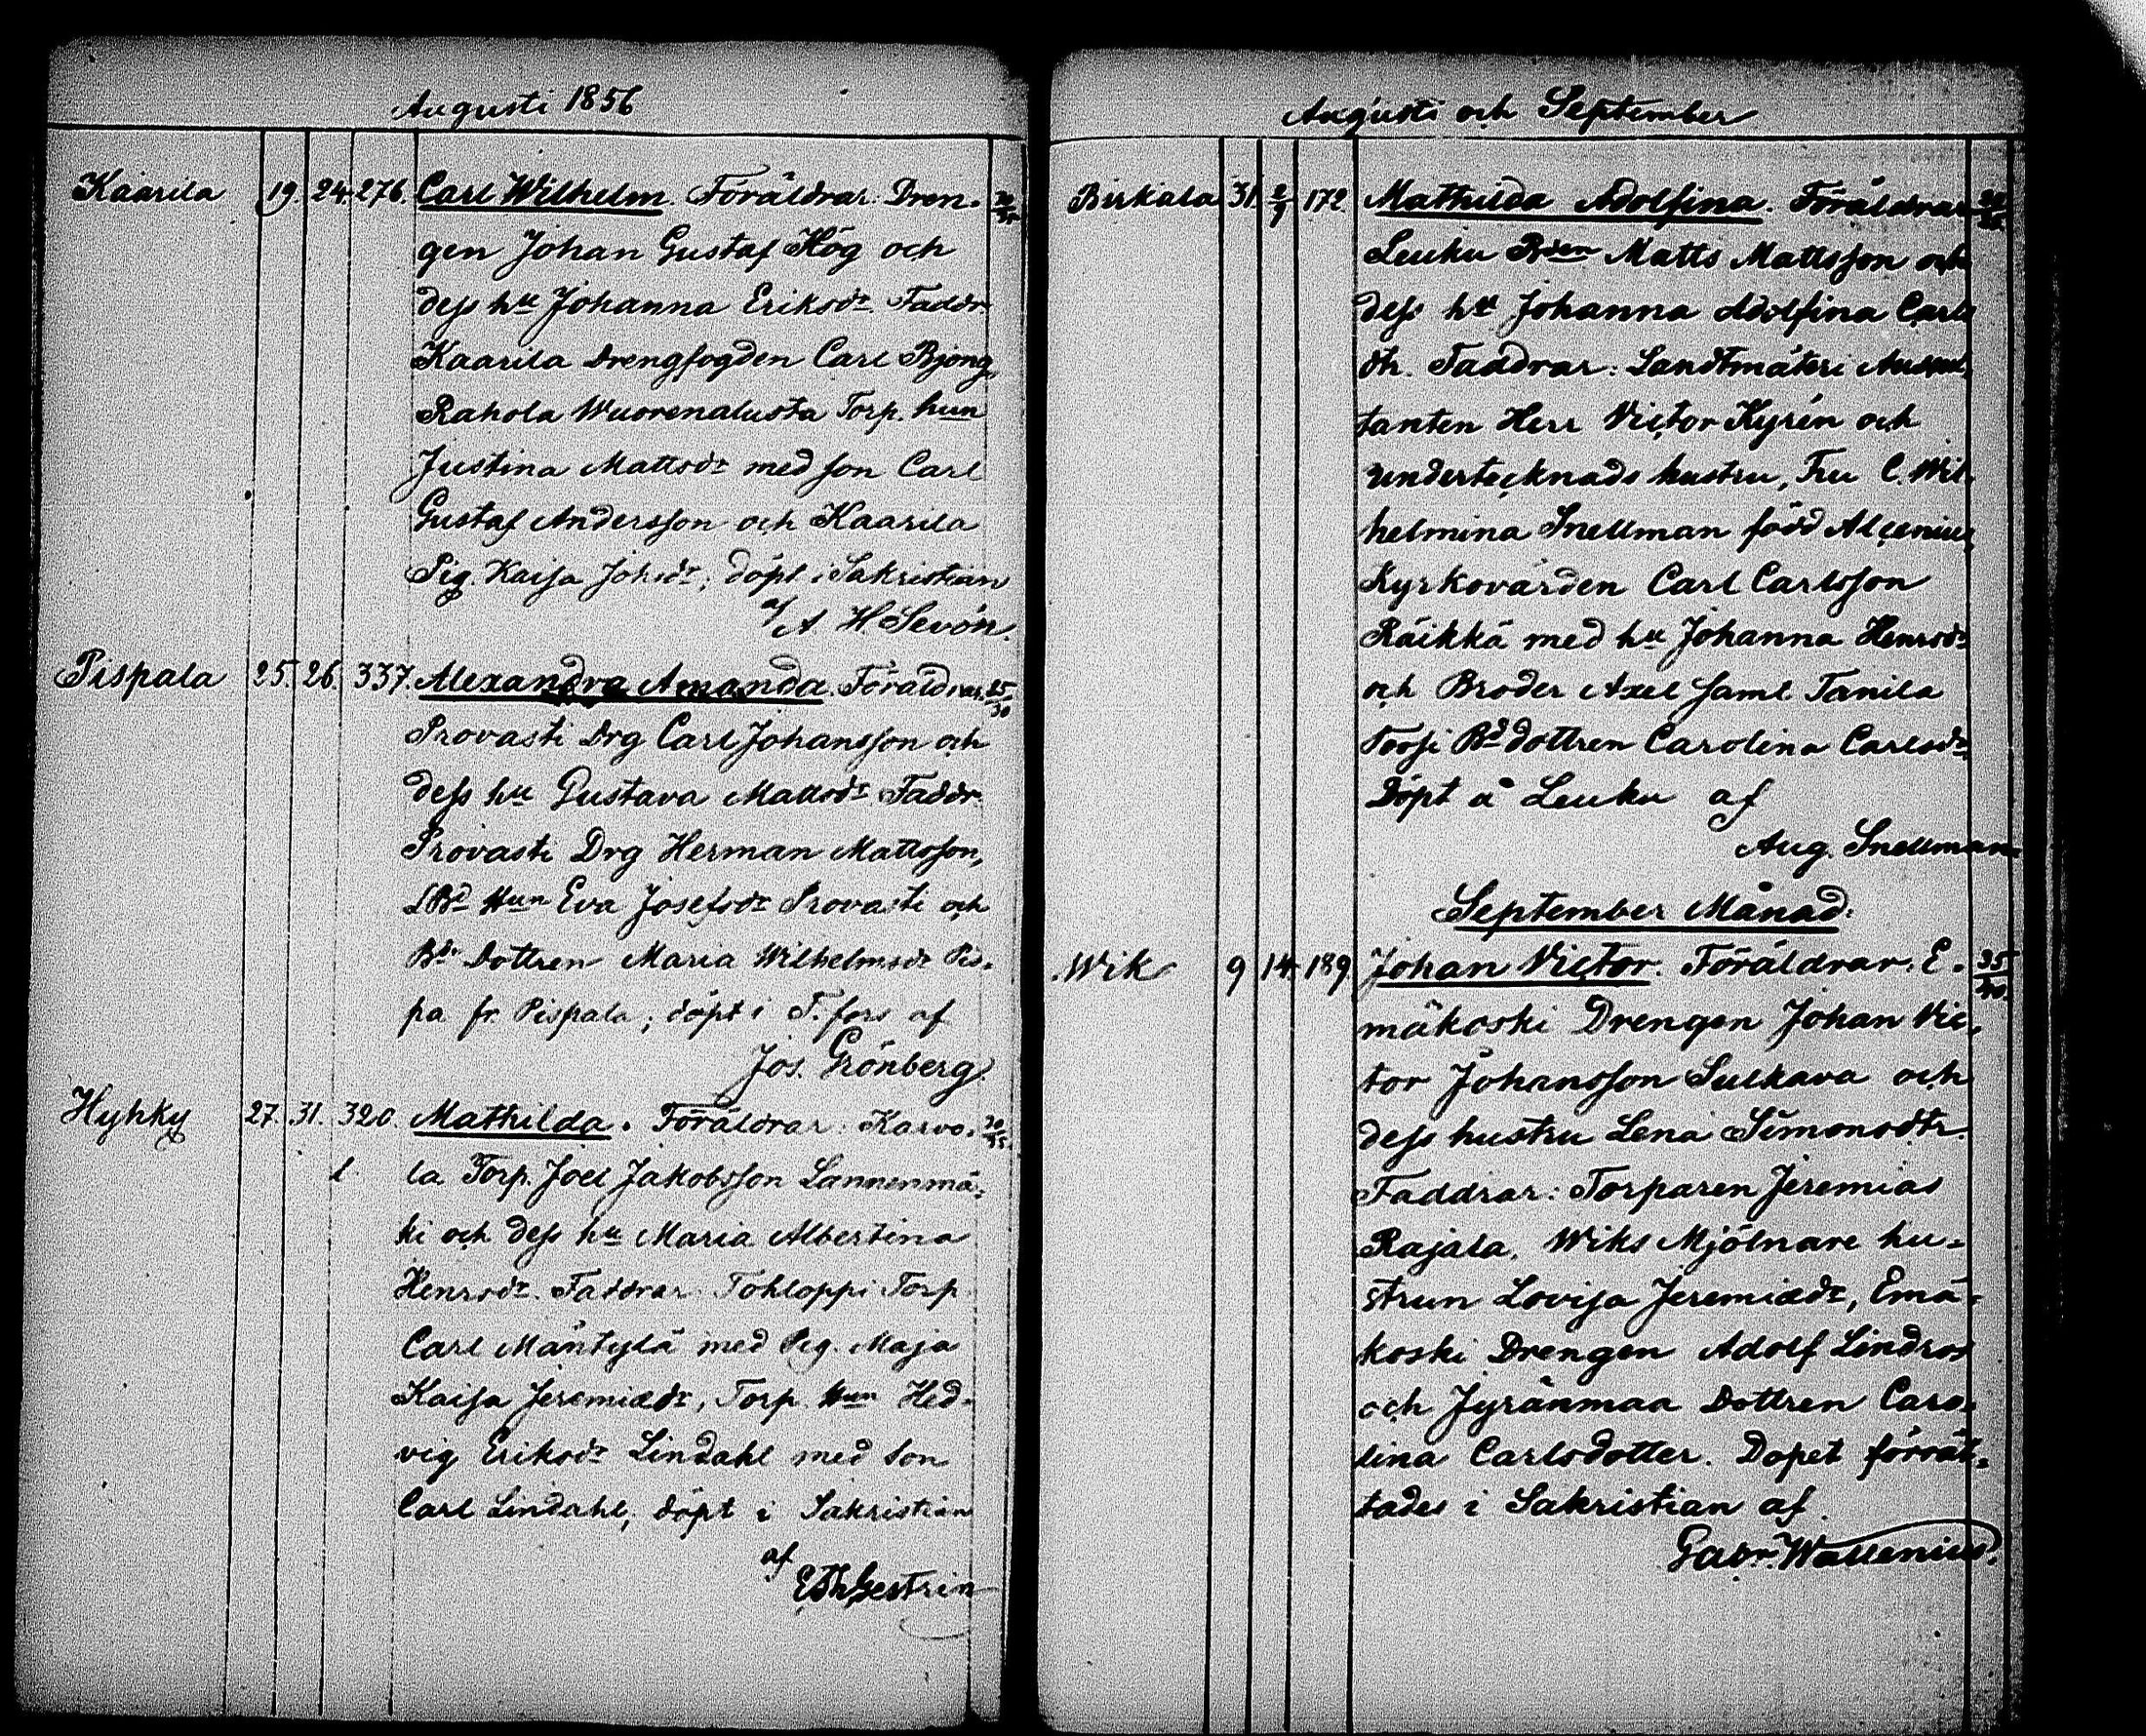 Augusti 1856
Kaarila 19. 24. 276. Carl Wilhelm. Föräldrar: Dren-
gen Johan Gustaf Hög och
dess hu Johanna Eriksdr. Faddr
Kaarila Drengfogden Carl Bjong,
Rahola Wuorenalusta Torp. hun
Justina Mattsdr med son Carl
Gustaf Andersson och Kaarila
Pig. Kaisa Johsdr; döpt i Sakristian
af A. H. Sevón.
Pispala 25. 26. 337. Alexandra Amanda. Föräldrar, 25/30
Provasti Drg Carl Johansson och
dess hu Gustava Mattsdr Faddr
Provasti Drg Herman Mattsson,
LBd Hun Eva Josefsdr Provasti och
Bdr Dottren Maria Wilhelmsdr Pis-
pa fr. Pispala; döpt i T.fors af
Jos. Grönberg.
Hyhky 27. 31. 320. Mathilda. Föräldrar: Karvo- 30/35
l. la Torp. Joel Jakobsson Lannenmä-
ki och dess hu Maria Albertina
Henrsdr. Faddrar Tohloppi Torp
Carl Mäntylä med Pig. Maja
Kaisa Jeremiædr, Torp. Hun Hed-
vig Eriksdr Lindahl med son
Carl Lindahl; döpt i Sakristian
af
E Th Gestrin
Augusti och September
Birkala 31. 2/9 172. Mathilda Adolfina. Föräldrar
Leuku Bden Matts Mattsson och
dess hu Johanna Adolfina Carls
dtr. Faddrar: Landtmäteri Auscul-
tanten Herr Victor Kyrén och
undertecknads hustru, Fru C. Wil-
helmina Snellman född Alcenius,
Kyrkovärden Carl Carlsson
Räikkä med hu Johanna Henrsdr
och Broder Axel Saml Tanila
Toosi Bd dottren Carolina Carlsdr
Döpt å Leuku af
Aug. Snellman
September Månad:
Wik 9 14. 189 Johan Victor. Föräldrar. E- 35/40.
mäkoski Drengen Johan Vic-
tor Johansson Sulkava och
dess hustru Lena Simonsdtr.
Faddrar: Torparen Jeremias
Rajala, Wiks Mjölnare hu-
strun Lovisa Jeremiædr, Emä-
koski Drengen Adolf Lindros
och Jyränmaa Dottren Caro-
lina Carlsdotter. Dopet förrät-
tades i Sakristian af
Gabr. Wallenius.